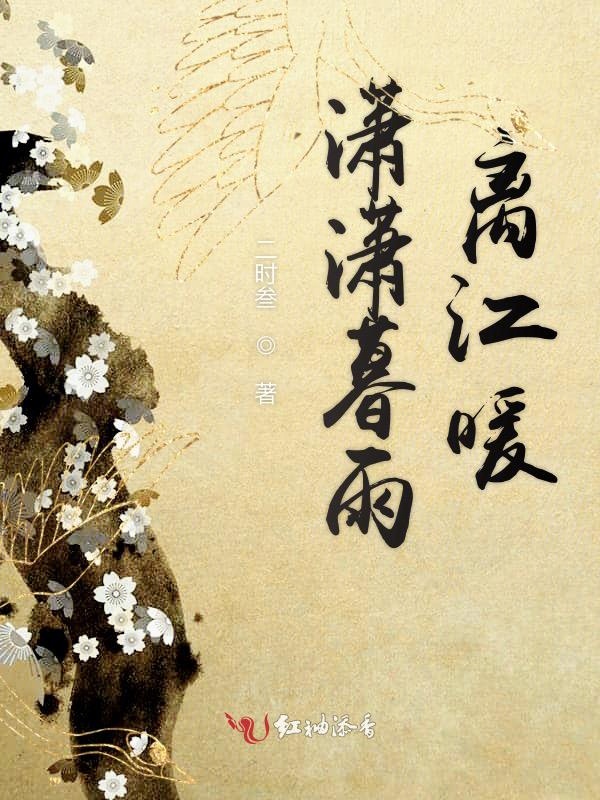 离江暖
潇潇暮雨
二时叁 ◎ 著
红袖添香